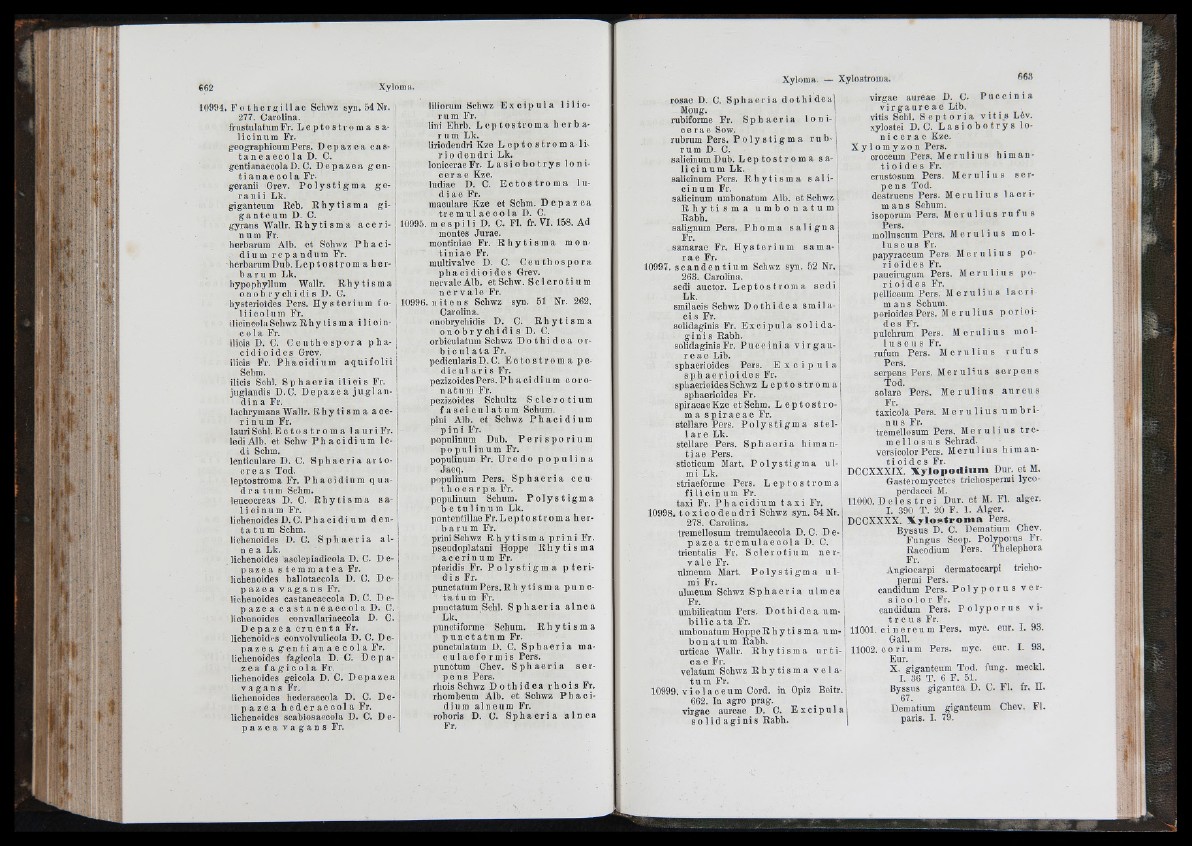 662
Xyloma.
10994. Fothergillae Schwz syn. 54 Nr.
277. Carolina.
frustulatum Fr. Leptostroma sa-
licinum Fr.
geographicum Pers. Depazea cas-
taneaecola D. C.
gentianaecola D. C. Depazea gen-
tianaecola Fr.
geranii Grev. Polystigma ge-
ranii Lk.
giganteum Reb. Rhytisma gi-
ganteum D. C.
gyrans Wallr. Rhytisma aceri-
num Fr.
herbarum Alb. et Schwz Phaci-
dium repandum Fr.
herbarum Dub. Leptostroma her-
barum Lk.
hypophyllum Wallr. Rhytisma
onobrychidis D. C.
hysterioides Pers. Hysterium fo-
liicolum Fr.
ilicincola Schwz Rhytisma ilicin-
cola Fr.
ilicis D. C. Ceuthospora pha-
cidioides Grev.
ilicis Fr. Phacidium aquifolii
Schm.
ilicis Schl. Sphaeria ilicis Fr.
juglandis D. C. Depazea juglan-
dina Fr.
lachrymans Wallr. Rhytisma ace-
rinum Fr.
lauri Sohl. Ectostroma lauri Fr.
ledi Alb. et Schw Phacidium le-
di Schm.
lenticulare D. C. Sphaeria arto-
creas Tod.
leptostroma Fr. Phacidium qua-
dratum Schm.
leucocreas D. C. Rhytisma sa-
licinum Fr.
lichenoides D. C. Phacidium den-
tatum Schm.
lichenoides D. C. Sphaeria al-
nea Lk.
lichenoides asclepiadicola D. C. De-
pazea stemmatea Fr.
lichenoides ballotaecola D. C. De-
pazea vagans Fr.
lichenoides castaneaecola D. C. De-
pazea castaneaecola D. C.
lichenoides convallariaecola D. C.
Depazea cruenta Fr.
lichenoides convolvulicola D. C. De-
pazea gentianaecola Fr.
lichenoides fagicola D. C. Depa-
zea fagicola Fr.
lichenoides geicola D. C. Depazea
vagans Fr.
lichenoides hederaecola D. C. De-
pazea hederaecola Fr.
lichenoides scabiosaecola D. C. De-
pazea vagans Fr.
liliorum Schwz Excipula lilio-
rum Fr.
lini Ehrb. Leptostroma herba-
rum Lk.
liriodendri Kze Leptostroma li-
riodendri Lk.
lonicerae Fr. Lasiobotrys loni-
cerae Kze.
ludiae D. C. Ectostroma lu-
diae Fr.
maculare Kze et Schm. Depazea
tremulaecola D. C.
10995. mespili D. C. Fl. fr. VI. 158. Ad
montes Jurae.
montiniae Fr. Rhytisma mon-
tiniae Fr.
multivalve D. C. Ceuthospora
phacidioides Grev.
nervale Alb. et Schw. Sclerotium
nervale Fr.
10996. nitens Schwz syn. 51 Nr. 262.
Carolina.
onobrychidis D. C. Rhytisma
onobrychidis D. C.
orbiculatum Schwz Dothidea or-
biculata Fr.
pedicularis D. C. Ectostroma pe-
dicularis Fr.
pezizoides Pers. Phacidium coro-
natum Fr.
pezizoides Schultz Sclerotium
fasciculatum Schum.
pini Alb. et Schwz Phacidium
pini Fr.
populinum Dub. Perisporium
populinum Fr.
populinum Fr. Uredo populina
Jacq.
populinum Pers. Sphaeria ceu-
thocarpa Fr.
populinum Schum. Polystigma
betulinum Lk.
pontentillae Fr. Leptostroma her-
barum Fr.
prini Schwz Rhytisma prini Fr.
pseudoplatani Hoppe Rhytisma
acerinum Fr.
pteridis Fr. Polystigma pteri-
dis Fr.
punctatum Pers. Rhytisma punc-
tatum Fr.
punctatum Schl. Sphaeria alnea
Lk.
punctiforme Schum. Rhytisma
punctatum Fr.
punctulatum D. C. Sphaeria ma-
culaeformis Pers.
punctum Chev. Sphaeria ser-
pens Pers.
rhois Schwz Dothidea rhois Fr.
rhombeum Alb. et Schwz Phaci-
dium alneum Fr.
roboris D. C. Sphaeria alnea
Fr.
Xyloma. — Xylostroma.
663
rosae D. C. Sphaeria dothidea
Moug.
rubiforme Fr. Sphaeria loni-
cerae Sow.
rubrum Pers. Polystigma rub-
rum D. C.
salicinum Dub. Leptostroma sa-
licinum Lk.
salicinum Pers. Rhytisma sali-
cinum Fr.
salicinum umbonatum Alb. et Schwz
Rhytisma umbonatum
Rabh.
salignum Pers. Phoma saligna
Fr.
samarae Fr. Hysterium sama-
rae Fr.
10997. scandentium Schwz syn. 52 Nr.
263. Carolina.
sedi auctor. Leptostroma sedi
Lk.
smilacis Schwz Dothidea smila-
cis Fr.
solidaginis Fr. Excipula solida-
ginis Rabh.
solidaginis Fr. Puccinia virgau-
reae Lib.
sphaerioides Pers. Excipula
sphaerioides Fr.
sphaerioides Schwz Leptostroma
sphaerioides Fr.
spiraeae Kze et Schm. Leptostro-
ma spiraeae Fr.
stellare Pers. Polystigma stel-
lare Lk.
stellare Pers. Sphaeria himan-
tiae Pers.
sticticum Mart. Polystigma ul-
mi Lk.
striaeforme Pers. Leptostroma
filicinum Fr.
taxi Fr. Phacidium taxi Fr.
10998. toxicodendri Schwz syn. 54 Nr.
278. Carolina.
tremellosum tremulaecola D. C. De-
pazea tremulaecola D. C.
trientalis Fr. Sclerotium ner-
vale Fr.
ulmeum Mart. Polystigma ul-
mi Fr.
ulmeum Schwz Sphaeria ulmea
Fr.
umbilicatum Pers. Dothidea um-
bilicata Fr.
umbonatum Hoppe Rhytisma um-
bonatum Rabh.
urticae Wallr. Rhytisma urti-
cae Fr.
velatum Schwz Rhytisma vela-
tum Fr.
10999. violaceum Cord. in Opiz Beitr.
662. In agro prag.
virgae aureae D. C. Excipula
solidaginis Rabh.
virgae aureae D. C. Puccinia
virgaureae Lib.
vitis Schl. Septoria vitis Lèv.
xylostei D. C. Lasiobotrys lo-
nicerae Kze.
Xylomyzon Pers.
croceum Pers. Merulius himan-
tioides Fr.
crustosum Pers. Merulius ser-
pens Tod.
destruens Pers. Merulius lacri-
mans Schum.
isoporum Pers. Merulius rufus
Pers.
molluscum Pers. Merulius mol-
luscus Fr.
papyraceum Pers. Merulius po-
rioides Fr.
paucirugum Pers. Merulius po-
rioides Fr.
pelliceum Pers. Merulius lacri-
mans Schum.
porioides Pers. Merulius porioi-
des Fr.
pulchrum Pers. Merulius mol-
luscus Fr.
rufum Pers. Merulius rufus
Pers.
serpens Pers. Merulius serpens
Tod.
solare Pers. Merulius aureus
Fr.
taxicola Pers. Merulius umbri-
nus Fr.
tremellosum Pers. Merulius tre-
mellosus Schrad.
versicolor Pers. Merulius himan-
tioides Fr.
DCCXXXIX. Xylopodium Dur. et M.
Gasteromycetes trichospermi lyco-
perdacei M.
11000. Delestrei Dur. et M. Fl. alger.
I. 390 T. 20 F. 1. Alger.
DCCXXXX. Xylostroma Pers.
Byssus D. C. Dematium Chev.
Fungus Scop. Polyporus Fr.
Racodium Pers. Thelephora
Fr.
Angiocarpi dermatocarpi tricho-
permi Pers.
candidum Pers. Polyporus ver-
sicolor Fr.
candidum Pers. Polyporus vi-
treus Fr.
11001. cinereum Pers. myc. eur. I. 93.
Gall.
11002. corium Pers. myc. eur. I. 93.
Eur.
X. giganteum Tod. fung. meckl.
I. 36 T. 6 F. 51.
Byssus gigantea D. C. Fl. fr. II.
67.
Dematium giganteum Chev. Fl.
paris. I. 79.